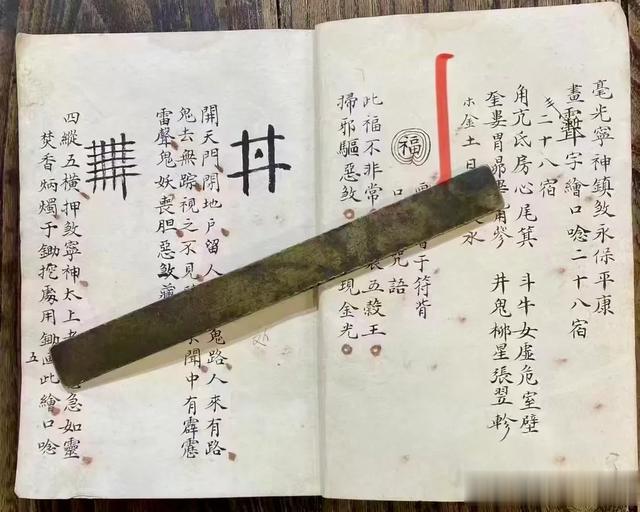 毫光寧神鎮煞永保平康
畫字繪口唸二十八宿
二十八宿
角亢氐房心尾箕 斗牛女虛危室壁
奎婁胃昴畢觜參 井鬼柳星張翌軫
木金土日 水
于符背
福 口 咒語
此福不非常 五穀王
掃邪驅惡煞 現金光
開天門閉地戶留人 鬼路人來有路
鬼去無踪視之不見 聞中有霹靂
雷聲鬼妖喪胆惡煞
四縱五橫押煞寧神太上 急如靈
焚香炳燭于鋤挖處用鋤 此繪口唸
五